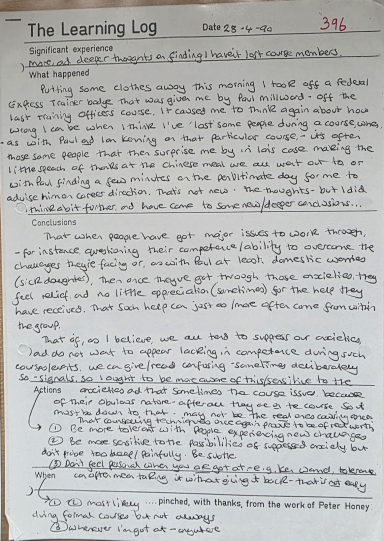 The Learning Log
Date 28-4-90
396
Significant experience
) more, and deeper thoughts on finding I haven't lost course members.
What happened
Putting some clothes away this morning I took off a Federal
Express Trainer badge that was given me by Paul Millward - off the
last Training Officers course. It caused me to think again about how
wrong I can be when I think I've 'lost' some people during a course, when,
- as with Paul and Ian on that particular course, - it's often
those same people that then surprise me by in Ian's case making the
little speech of thanks at the Chinese meal we all went out to, or
with Paul finding a few minutes on the penultimate day for me to
advise him on career direction. That's not new - the thoughts - but I did
think about it further, and have come to some new/deeper conclusions...
Conclusions
That when people have got major issues to work through,
- for instance, questioning their competence/ability to overcome the
challenges they're facing or, as with Paul at least, domestic worries
(sick daughter), Then once they've got through those anxieties, they
feel relief, and no little appreciation (sometimes) for the help they
have received. That such help can just as/more often come from within
the group.
That if, as I believe, we all tend to suppress our anxieties,
and do not want to appear lacking in competence during such
courses/events, we can give/read confusing - sometimes deliberately
so - signals. So I ought to be more aware of this/sensitive to the
anxieties and that sometimes the course issues, because
of their obvious nature - after all they are on the course so it
must be down to that - may not be the real ones causing concern
That counselling techniques once again prove to be of real worth.
Actions
① Be more tolerant with people experiencing new challenges
② Be more sensitive to the possibilities of suppressed anxiety but
don't probe too deep/painfully. Be subtle.
③ Don't feel passed when you are got at - e.g. tolerance
can often mean taking it without giving it back - that's not easy
When
① ② most likely
.... pinched, with thanks, from the work of Peter Honey.
during formal courses but not always
③ Whenever I'm got at - anywhere